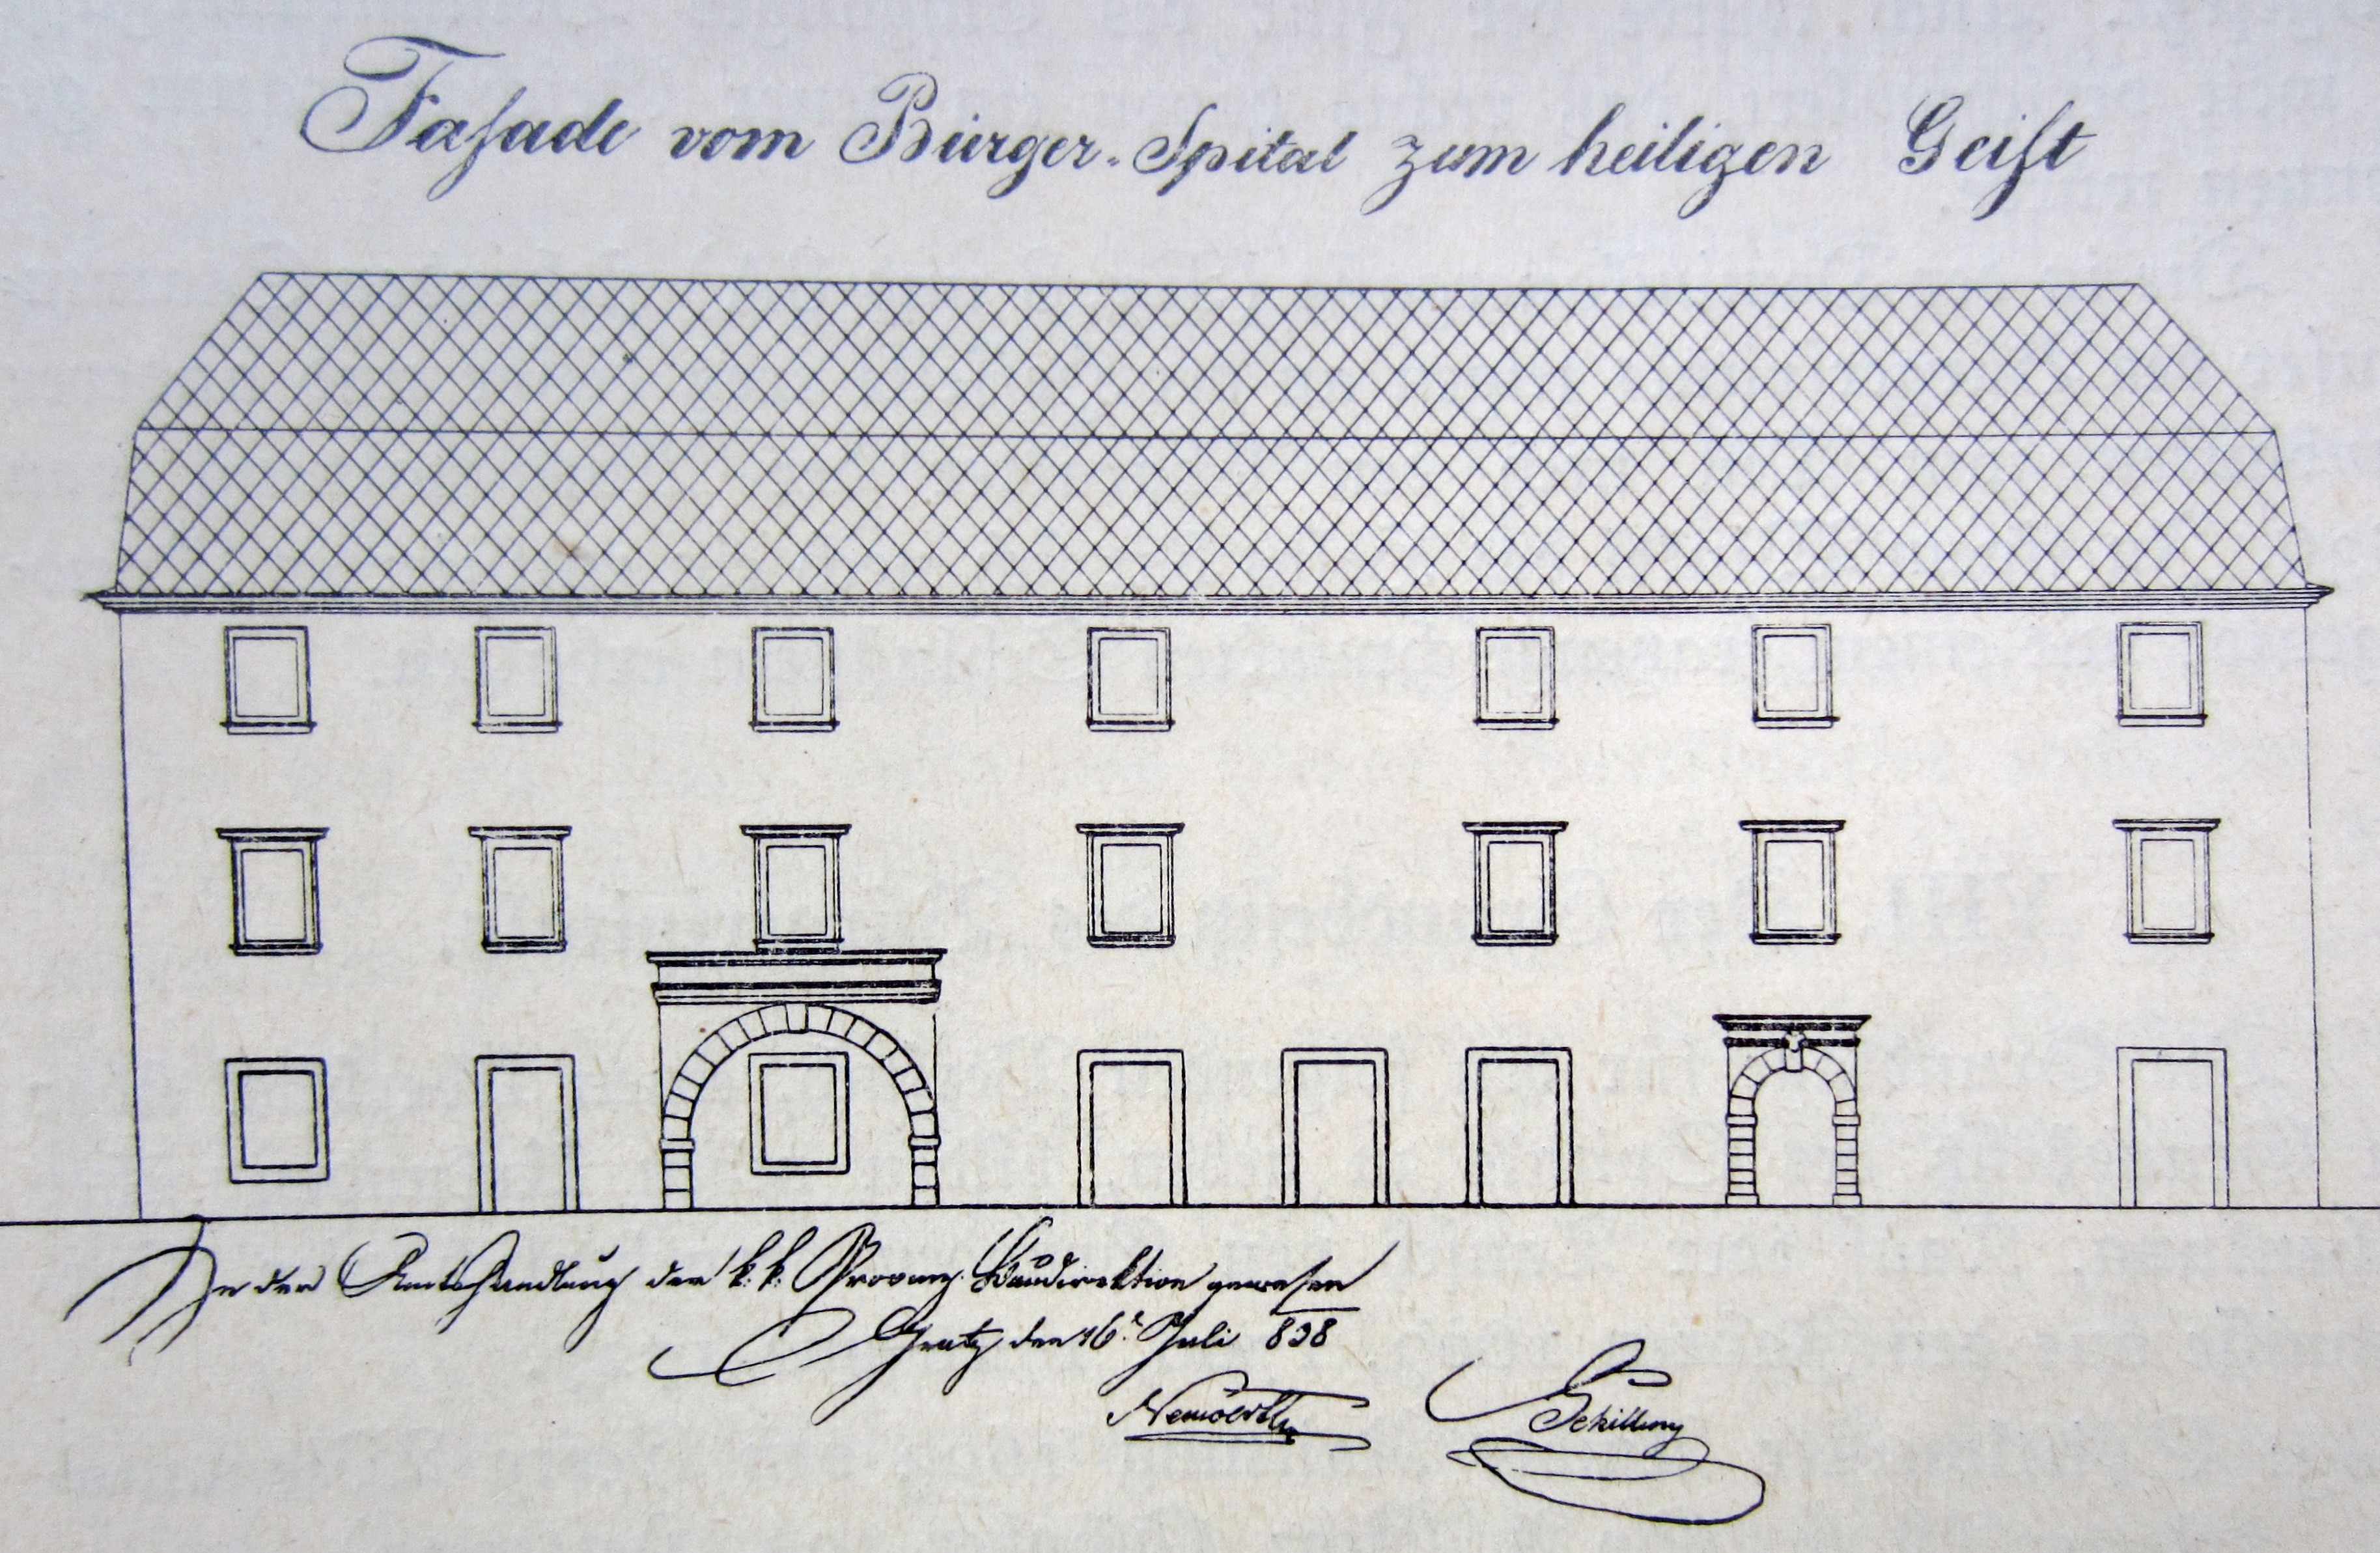 Faſade vom Bürger-Spital zum heiligen Geiſt
In der Amtshandlung der k. k. Provinz. Baudirektion geweſen
Gratz den 16. Juli 838
Schilling